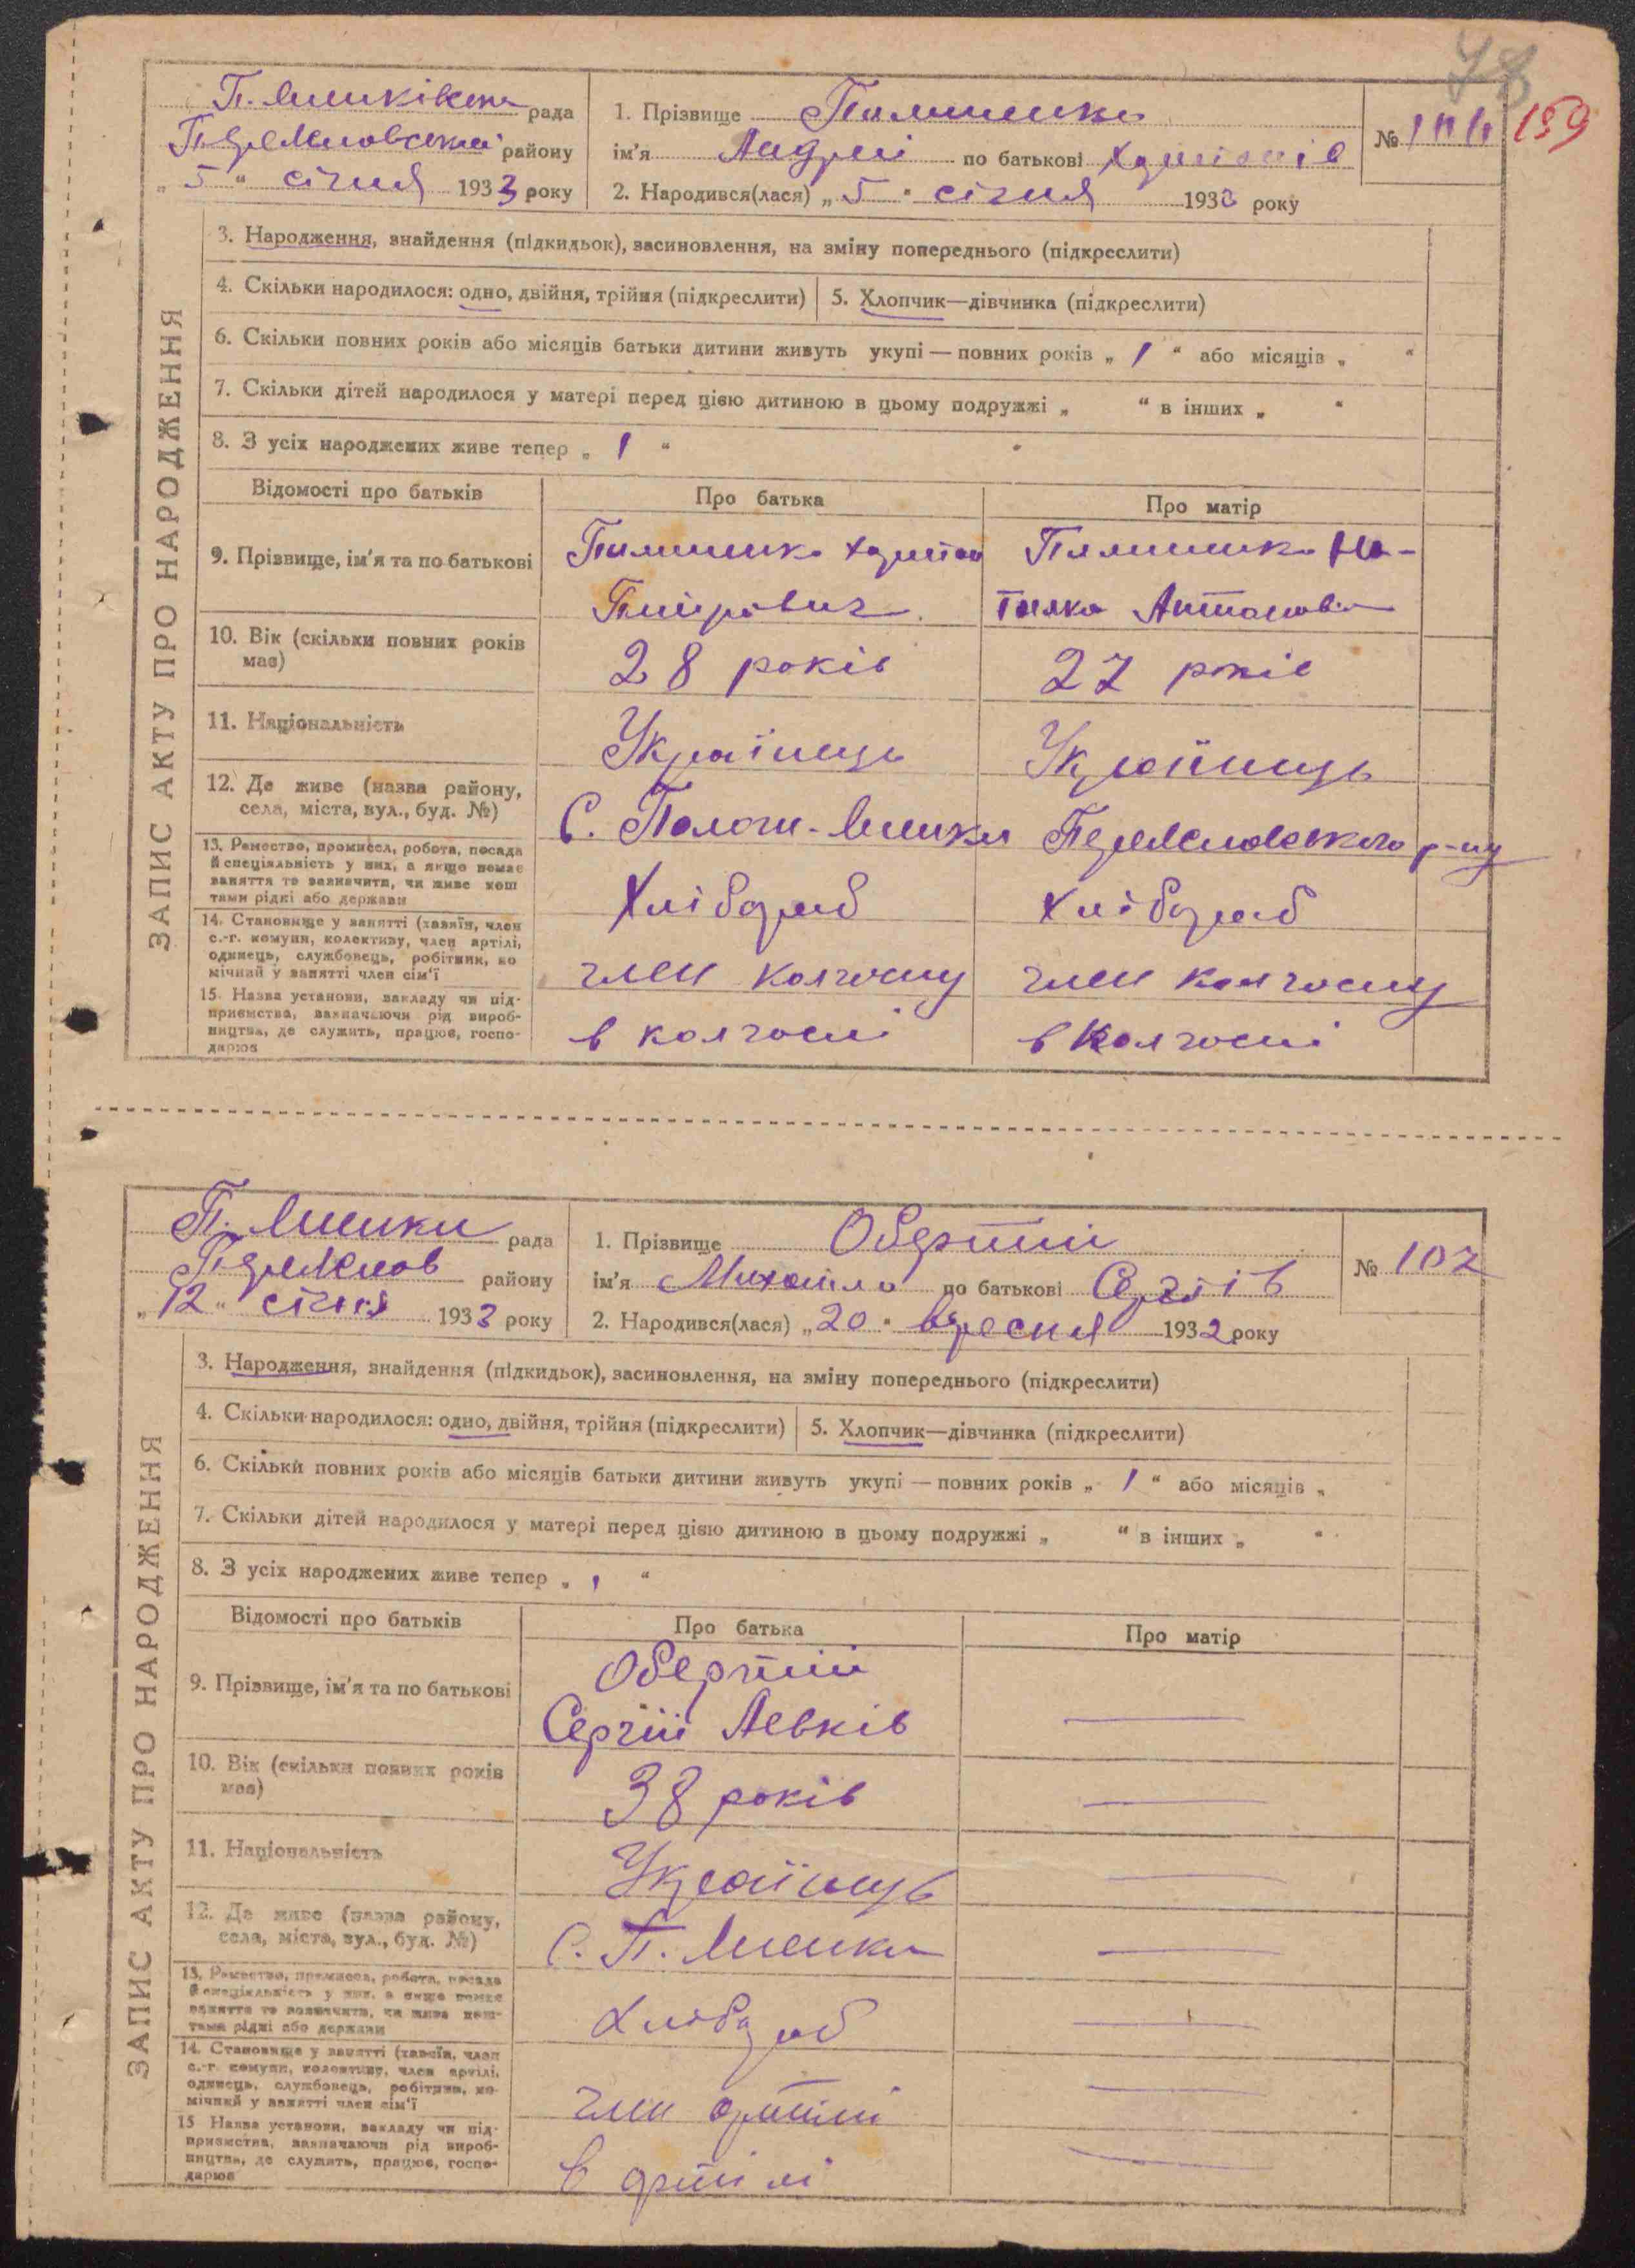 78
159
П. Яненківська рада
Переяславської району
„ 5 “ січня 1933 року
1. Прізвище Пилипенко
ім'я Андрій по батькові Харитонів
2. Народився(лася) „ 5 “ січня 1933 року
№
ЗАПИС АКТУ ПРО НАРОДЖЕННЯ
3. Народження, знайдення (підкидьок), засиновлення, на зміну попереднього (підкреслити)
4. Скільки народилося: одно, двійня, трійня (підкреслити) 5. Хлопчик—дівчинка (підкреслити)
6. Скільки повних років або місяців батьки дитини живуть укупі — повних років „ 1 “ або місяців „ “
7. Скільки дітей народилося у матері перед цією дитиною в цьому подружжі „ “ в інших „ “
8. З усіх народжених живе тепер „ 1 “
Відомості про батьків Про батька Про матір
9. Прізвище, ім'я та по батькові
Пилипенко Харитон
Пилипенко На-
талка Антонов
10. Вік (скільки повних років має)
28 років 27 років
11. Національність
Українець Українець
12. Де живе (назва району, села, міста, вул., буд. №)
С. Пологи-Яненки Переяславського р-ну
13. Ремество, промисел, робота, посада
й спеціальність у них, а якщо немає
заняття то зазначити, чи живе кош
тами рідні або держави
Хлібороб Хлібороб
14. Становище у занятті (хазяїн, член
с.-г. комуни, колективу, член артілі,
одинець, службовець, робітник, по
мічний у занятті член сім'ї
член колгоспу член колгоспу
15. Назва установи, закладу чи під-
приємства, зазначаючи рід вироб-
ництва, де служить, працює, госпо-
дарює
в колгоспі в колгоспі
П. Яненки рада
Переяслов району
„ 12 “ січня 1933 року
1. Прізвище Обертій
ім'я Михайло по батькові Сергіїв
2. Народився(лася) „ 20 “ вересня 1932 року
№ 102
ЗАПИС АКТУ ПРО НАРОДЖЕННЯ
3. Народження, знайдення (підкидьок), засиновлення, на зміну попереднього (підкреслити)
4. Скільки народилося: одно, двійня, трійня (підкреслити) 5. Хлопчик—дівчинка (підкреслити)
6. Скільки повних років або місяців батьки дитини живуть укупі — повних років „ 1 “ або місяців „
7. Скільки дітей народилося у матері перед цією дитиною в цьому подружжі „ “ в інших „ “
8. З усіх народжених живе тепер „ 1 “
Відомості про батьків Про батька Про матір
9. Прізвище, ім'я та по батькові
Обертій
Сергій Левків
10. Вік (скільки повних років має)
38 років
11. Національність
Українець
12. Де живе (назва району, села, міста, вул., буд. №)
С. П. Яненки
13. Ремество, промисел, робота, посада
й спеціальність у них, а якщо немає
заняття то зазначити, чи живе кош-
тами рідні або держави
Хлібороб
14. Становище у занятті (хазяїн, член
с.-г. комуни, колективу, член артілі,
одинець, службовець, робітник, по-
мічний у занятті член сім'ї
член артілі
15 Назва установи, закладу чи під-
приємства, зазначаючи рід вироб-
ництва, де служить, працює, госпо-
дарює
в артілі